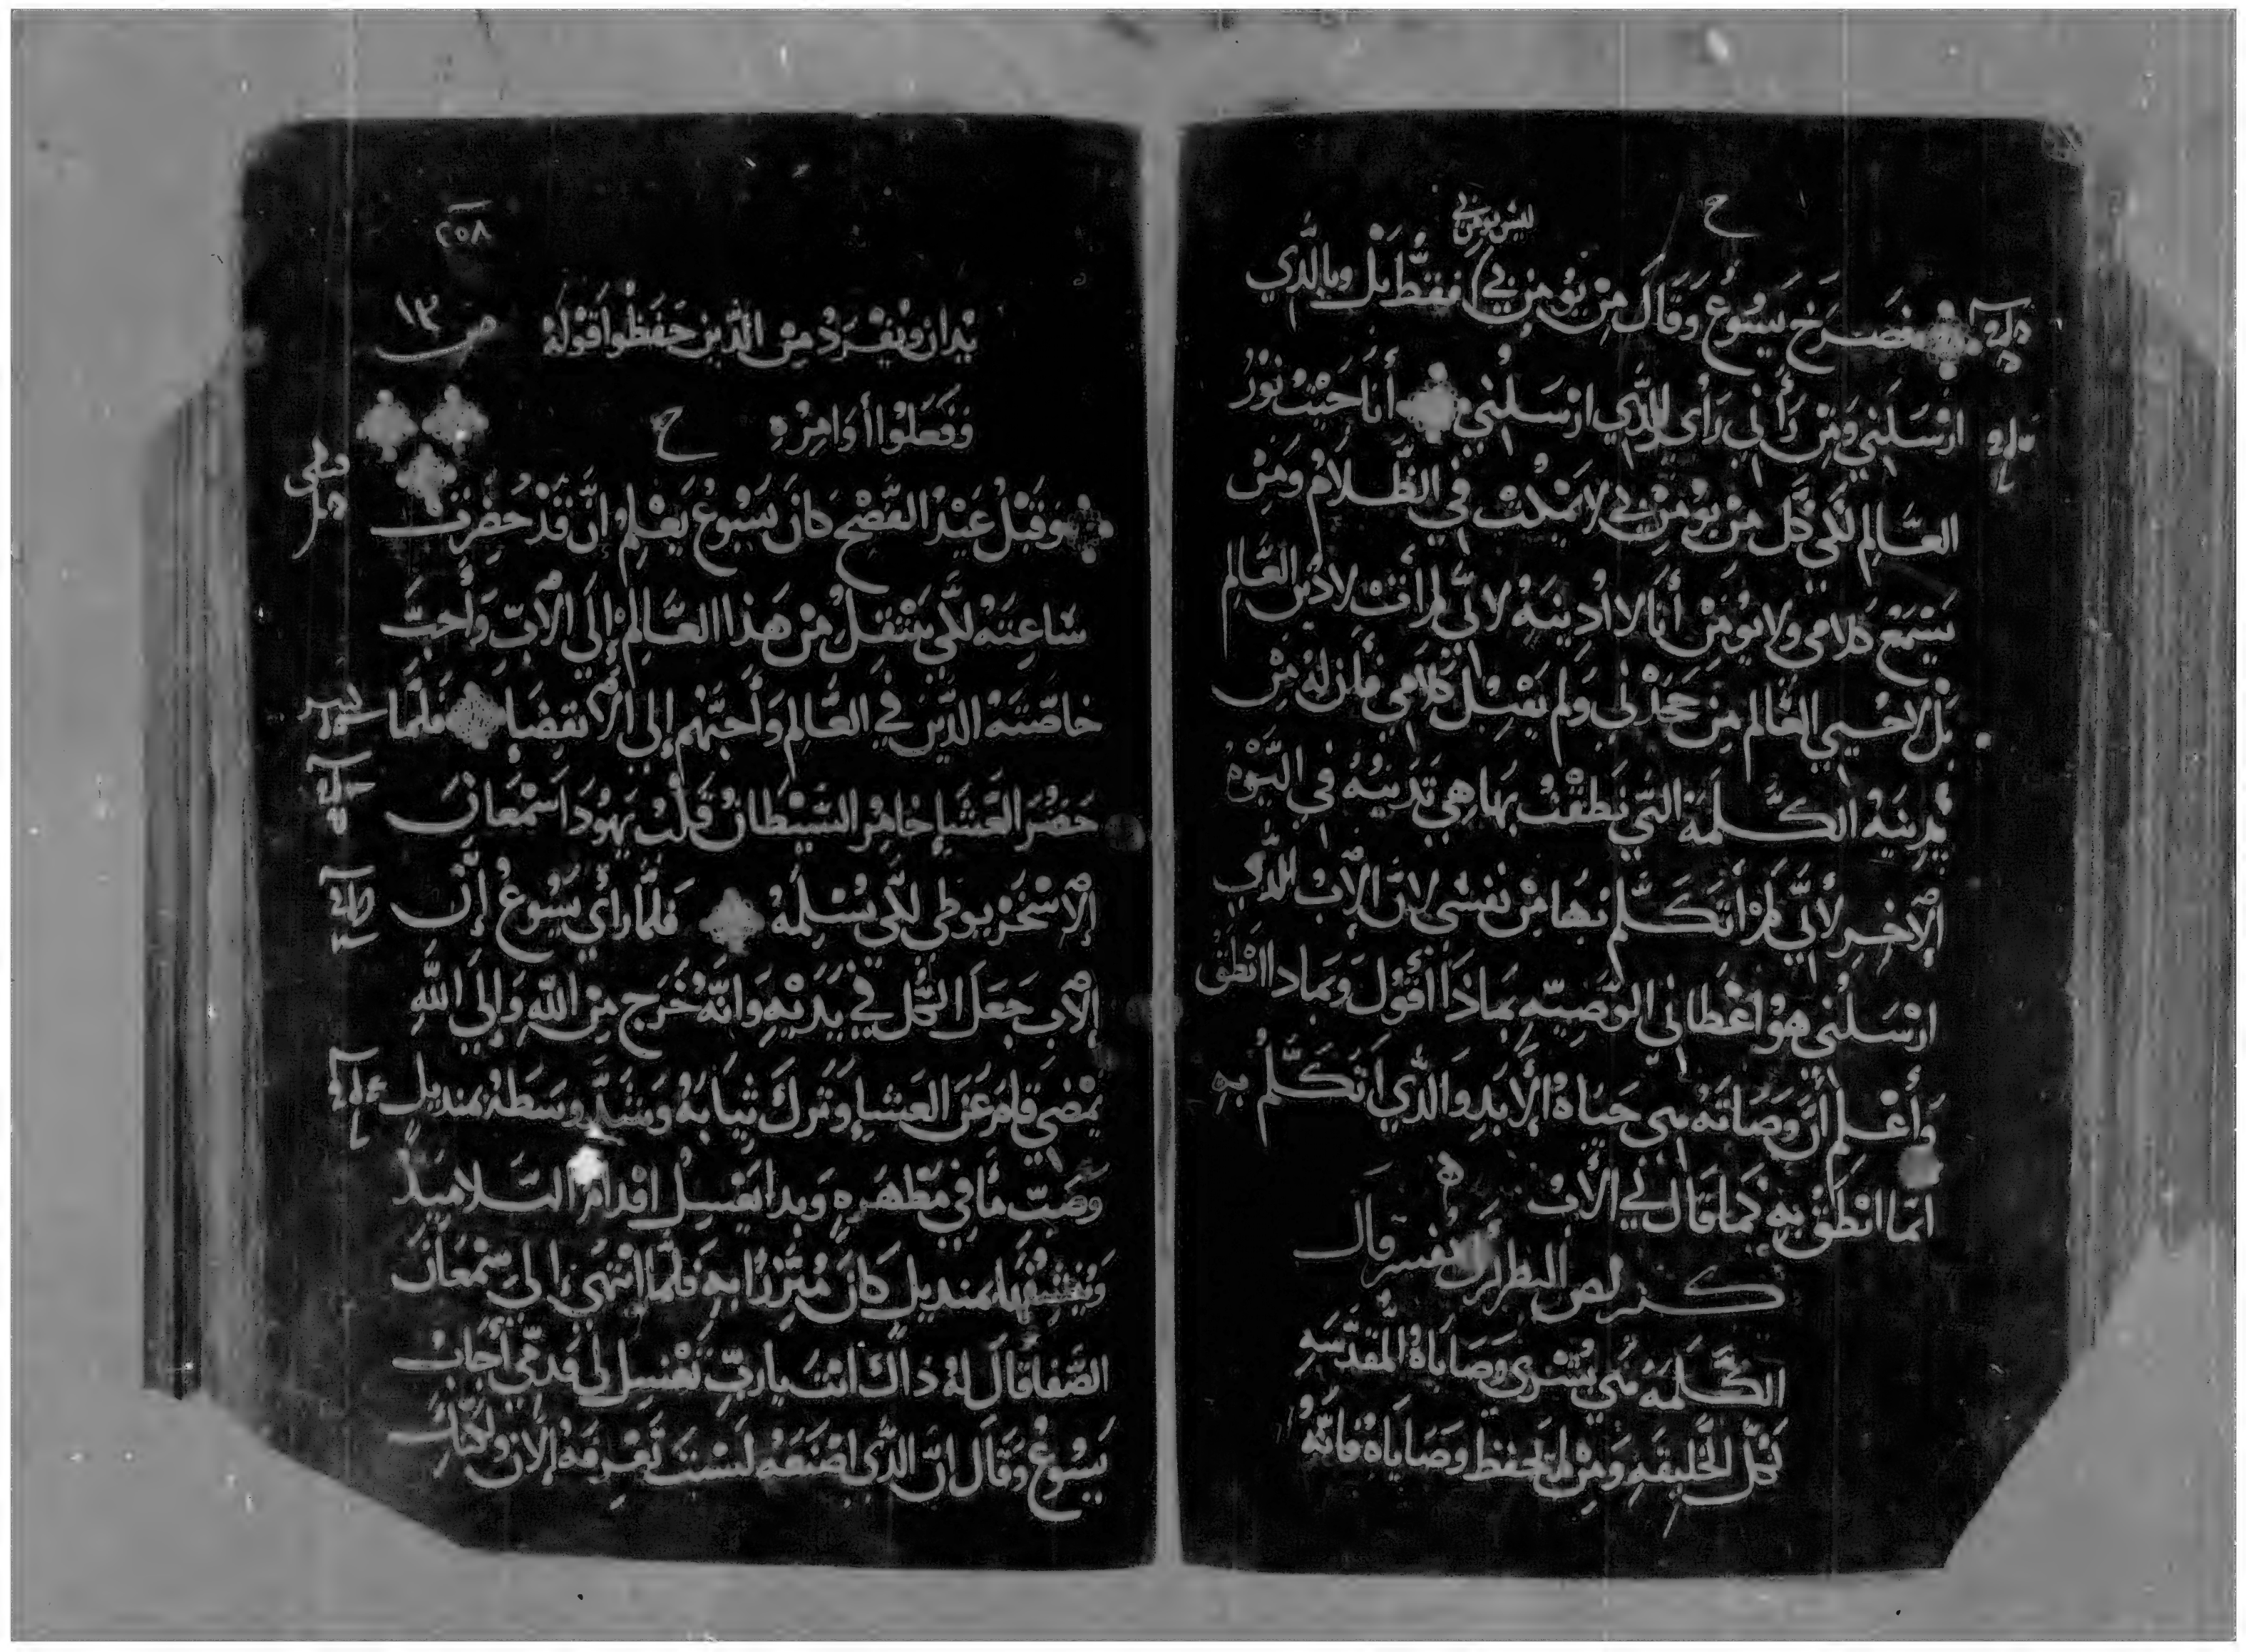 ح
ليس يومن بي
فصرخ يسوع وقال من يومن بي فقط بل وبالذي
ارسلني ومن رأني رأي للذي ارسلني أنا جيت نور
العالم لكي كل من يومن بي لا يمكث في الظلام ومن
يسمع كلامي ولا يومن أنا لا ادينه لاني لم أت لادين العالم
بل لاحيي العالم من جحدني ولم يقبل كلامي فان له من
يدينه الكلمة التي نطقت بها هي تدينه في اليوم
الاخير لأني لم اتكلم بها من نفسي لان الاب الذي
ارسلني هو اعطاني الوصيه بماذا أقول وبماذا انطق
وأعلم أن وصاته هي حياة الأبد والذي اتكلم به
انما انطق به كما قال لي الأب
قال
الكلمة وصاياه المقدسه
لكل الخليقه ومن لم يحفظ وصاياه فانه
٢٥٨
يدان وينفرد من الذين حفظوا قوله
وفعلوا أوامره
ح
ص ١٣
وقبل عيد الفصح كان يسوع يعلم ان قد حضرت
ساعته لكي ينتقل من هذا العالم إلى الأب وأحب
خاصته الذين في العالم وأحبهم إلى الانقضا فلما
حضر العشا خامر الشيطان قلب يهودا سمعان
الاسخريوطي لكي يسلمه فلما رأي يسوع إن
الأب جعل الكل في يديه وانه خرج من الله وإلى الله
يمضي قام عن العشا وترك ثيابه وشد وسطه بمنديل
وصب ما في مطهره وبدا يغسل اقدام التلاميذ
وينشفها بمنديل كان متزرا به فلما انتهي إلى سمعان
الصفا قال له ذاك انت يارب تغسل لي قدمي أجاب
يسوع وقال ان الذي اصنعه لست تعرفه الأن ولكنك